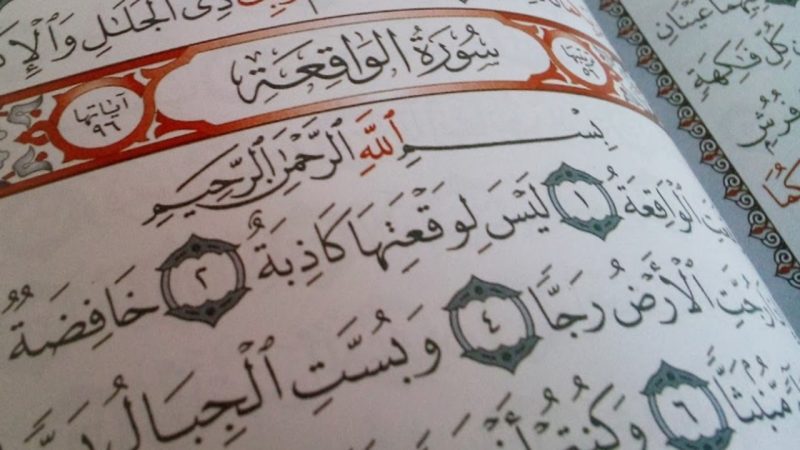 ذِى ٱلْجَلَـٰلِ وَٱلْإِكْ
سُورَةُ الوَاقِعَةِ
آياتها
٩٦
بِسْمِ ٱللَّهِ ٱلرَّحْمَـٰنِ ٱلرَّحِيمِ
ٱلْوَاقِعَةُ ١ لَيْسَ لِوَقْعَتِهَا كَاذِبَةٌ ٢ خَافِضَةٌ
رُجَّتِ ٱلْأَرْضُ رَجًّا ٤ وَبُسَّتِ ٱلْجِبَالُ
مُّنۢبَثًّا ٦ وَكُنتُمْ
عَيْنَانِ
كُلِّ فَـٰكِهَةٍ
فُرُشٍ